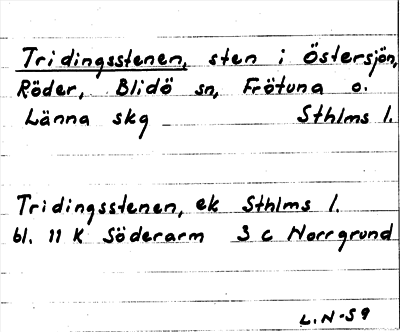 Tridingsstenen, sten i Östersjön,
Röder, Blidö sn, Frötuna o.
Länna skg Sthlms l.
Tridingsstenen, ek Sthlms l.
bl. 11 K Söderarm 3 c Norrgrund
L.N-59